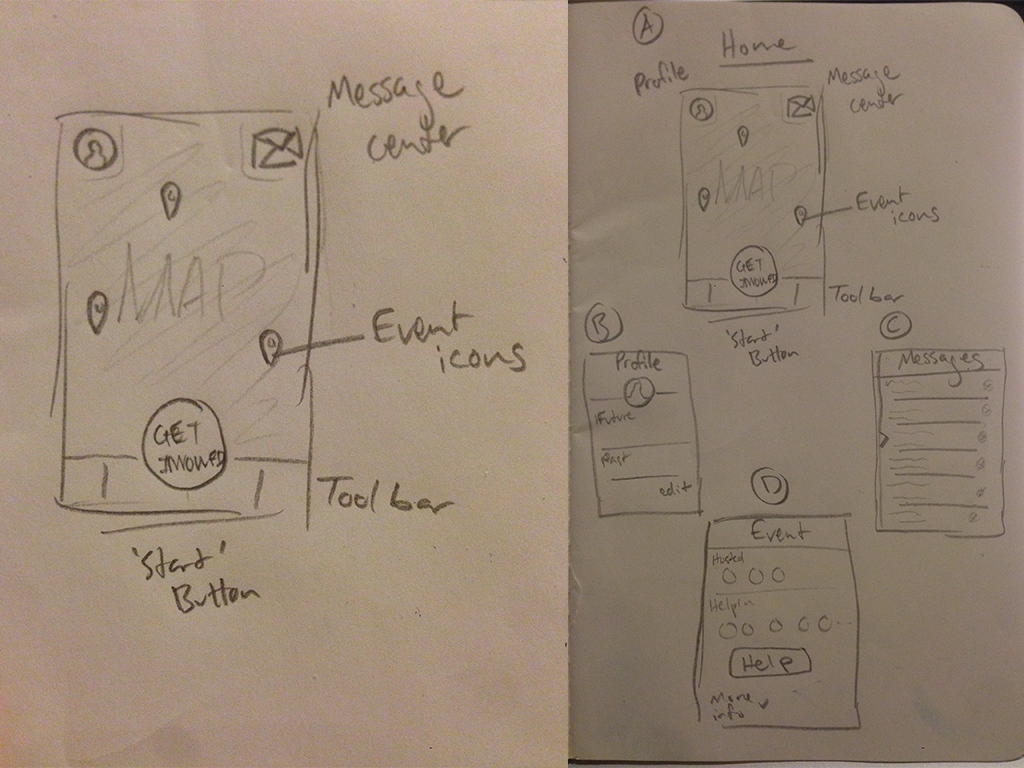 Message
center
MAP
Event
icons
GET
INVOLVED
Tool bar
'Start'
Button
A
Home
Profile
Message
center
MAP
Event
icons
GET
INVOLVED
Tool bar
'Start'
Button
B
Profile
Future
Past
edit
C
Messages
D
Event
Hosted
Helpin
Help
More
info